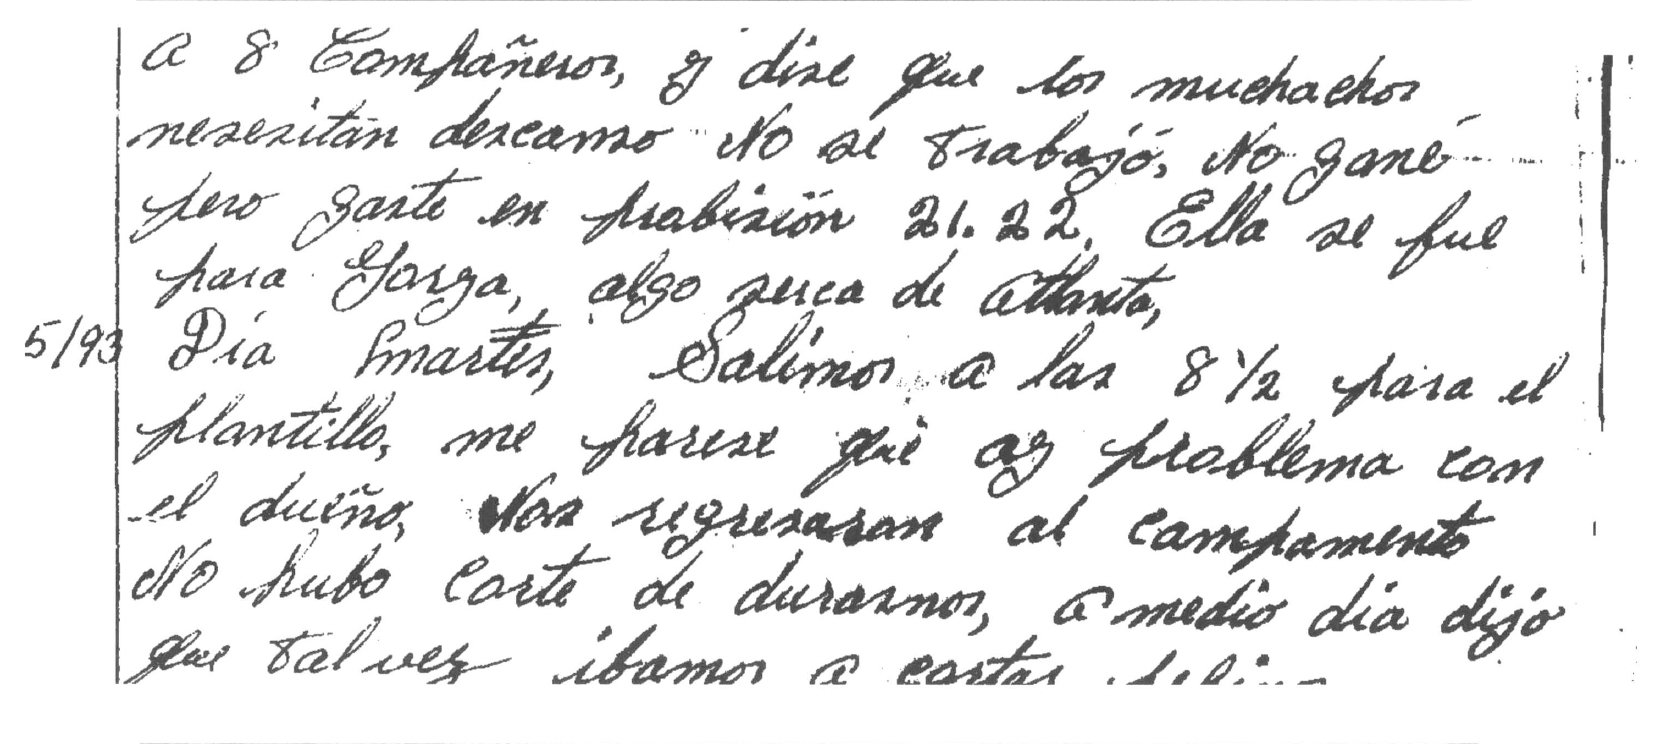 a 8 Compañeros, y dise que los muchachos
nesesitan descanso No se trabajó, No gané
pero gaste en probisión 21.22. Ella se fue
para Gorga, algo serca de Atlanta,
5/93 Día martes, Salimos a las 8 1/2 para el
plantillo, me parese que ay problema con
el dueño, Nos regresaron al campamento
No hubo corte de durasnos, a medio dia dijo
que tal vez ibamos a cortar